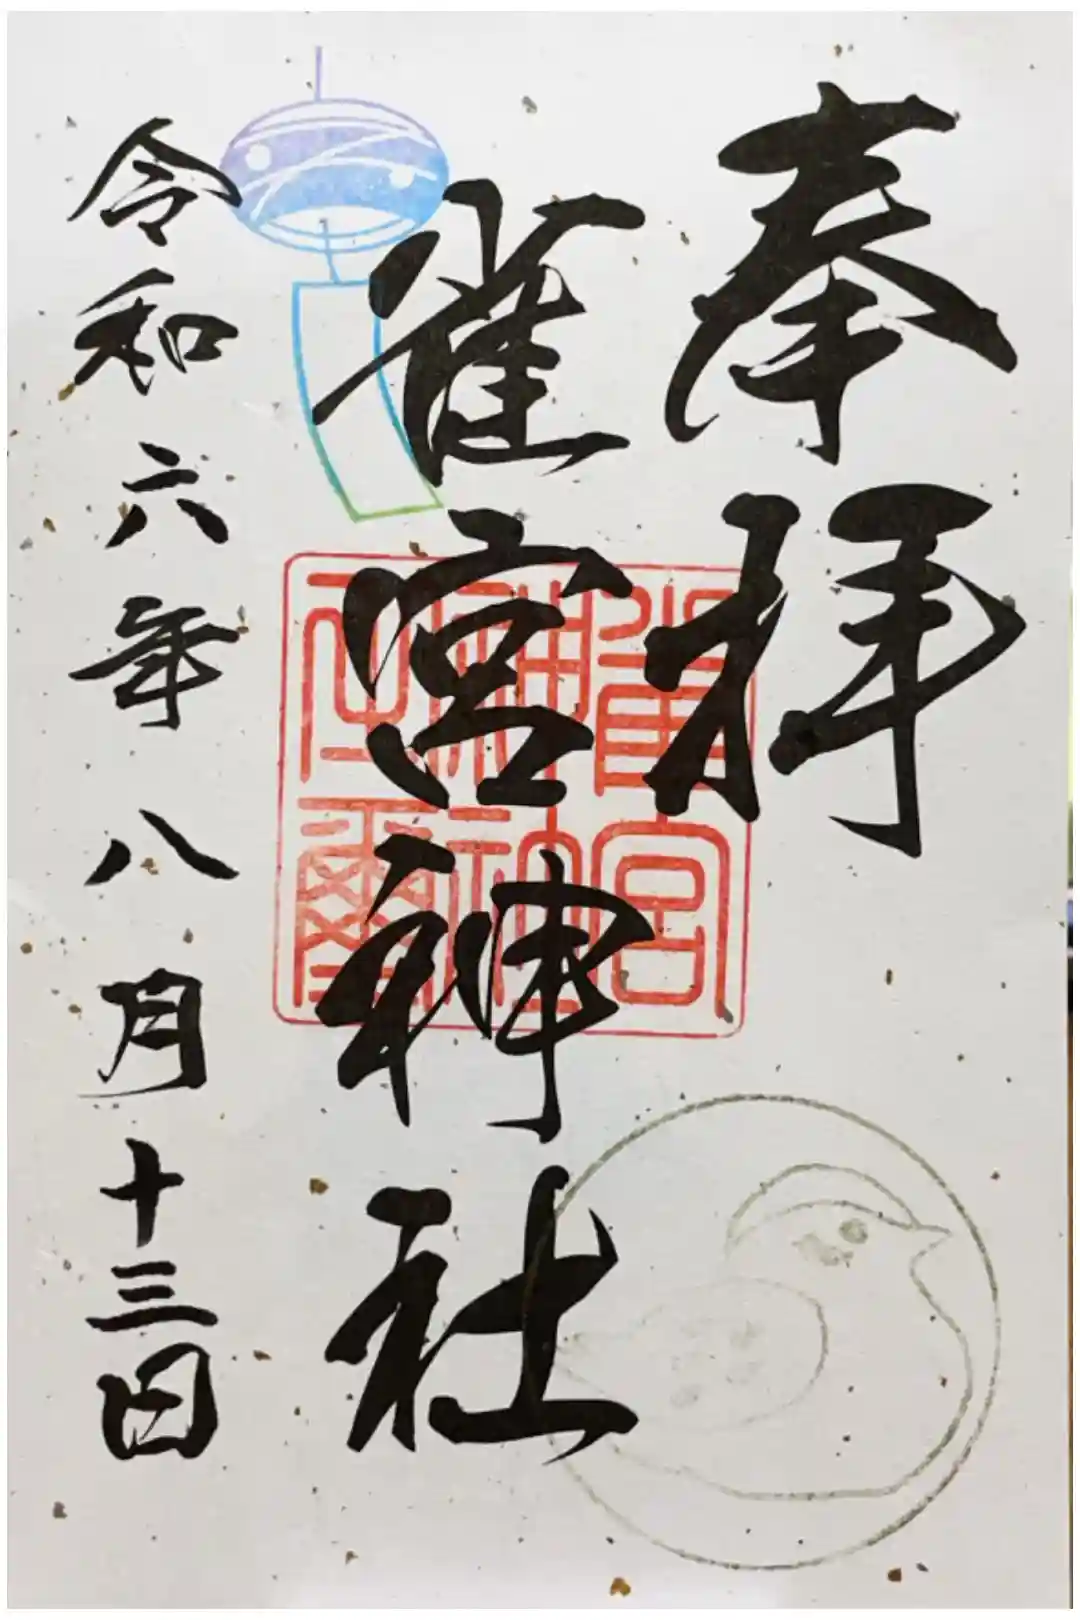 奉拝
雀宮神社
雀宮
神社
之璽
令和六年八月十三日